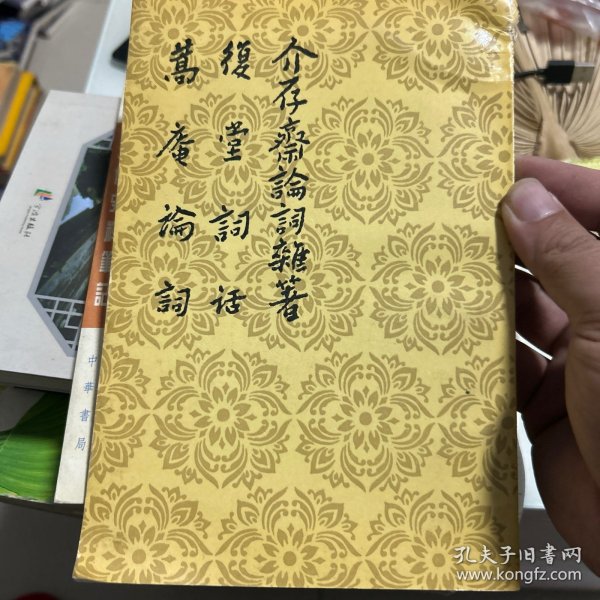 介存齋論詞雜著
復堂詞話
蒿庵論詞
中華書局
孔夫子旧书网
www.kongfz.com